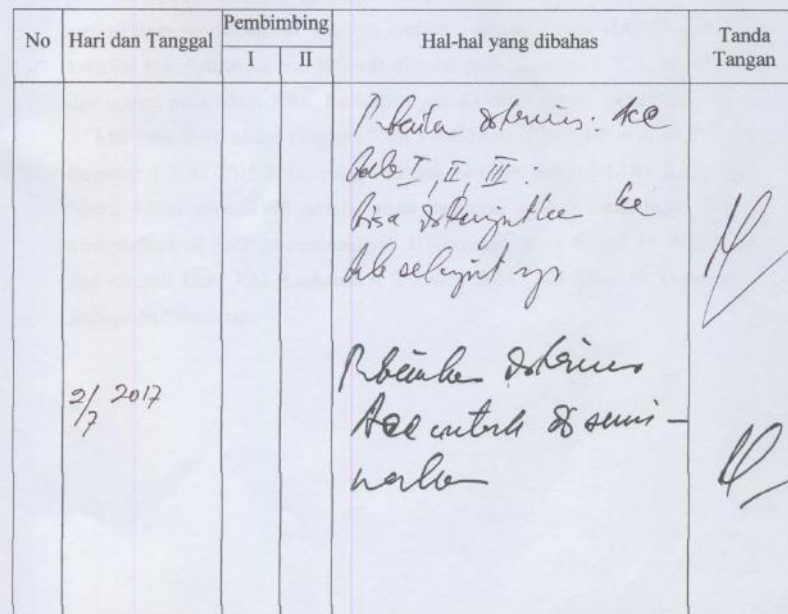 No Hari dan Tanggal Pembimbing Hal-hal yang dibahas Tanda Tangan
I II
diterima. Acc
bab I, II, III.
bisa dilanjutkan ke
bab selanjutnya
2/7 2017
diterima
Acc untuk disemi-
narkan